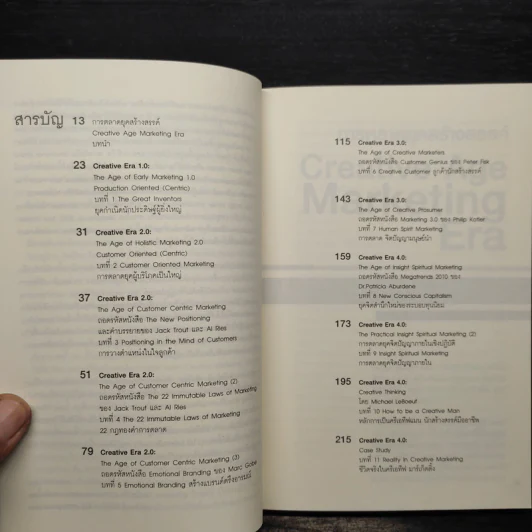 สารบัญ
13 การตลาดยุคสร้างสรรค์
Creative Age Marketing Era
บทนำ
23 Creative Era 1.0:
The Age of Early Marketing 1.0
Production Oriented (Centric)
บทที่ 1 The Great Inventors
ยุคกำเนิดนักประดิษฐ์ผู้ยิ่งใหญ่
31 Creative Era 2.0:
The Age of Holistic Marketing 2.0
Customer Oriented (Centric)
บทที่ 2 Customer Oriented Marketing
การตลาดยุคผู้บริโภคเป็นใหญ่
37 Creative Era 2.0:
The Age of Customer Centric Marketing
ถอดรหัสหนังสือ The New Positioning
และคำบรรยายของ Jack Trout และ Al Ries
บทที่ 3 Positioning in the Mind of Customers
การวางตำแหน่งในใจลูกค้า
51 Creative Era 2.0:
The Age of Customer Centric Marketing (2)
ถอดรหัสหนังสือ The 22 Immutable Laws of Marketing
ของ Jack Trout และ Al Ries
บทที่ 4 The 22 Immutable Laws of Marketing
22 กฎทองคำการตลาด
79 Creative Era 2.0:
The Age of Customer Centric Marketing (3)
ถอดรหัสหนังสือ Emotional Branding ของ Marc Gobe
บทที่ 5 Emotional Branding สร้างแบรนด์ตรึงอารมณ์
115 Creative Era 3.0:
The Age of Creative Marketers
ถอดรหัสหนังสือ Customer Genius ของ Peter Fisk
บทที่ 6 Creative Customer ลูกค้านักสร้างสรรค์
143 Creative Era 3.0:
The Age of Creative Prosumer
ถอดรหัสหนังสือ Marketing 3.0 ของ Philip Kotler
บทที่ 7 Human Spirit Marketing
การตลาด จิตปัญญามนุษย์นำ
159 Creative Era 4.0:
The Age of Insight Spiritual Marketing
ถอดรหัสหนังสือ Megatrends 2010 ของ
Dr.Patricia Aburdene
บทที่ 8 New Conscious Capitalism
ยุคจิตสำนึกใหม่ของระบอบทุนนิยม
173 Creative Era 4.0:
The Practical Insight Spiritual Marketing (2)
การตลาดยุคจิตปัญญาภายในเชิงปฏิบัติ
บทที่ 9 Insight Spiritual Marketing
การตลาดยุคจิตปัญญาภายใน
195 Creative Era 4.0:
Creative Thinking
โดย Michael LeBoeuf
บทที่ 10 How to be a Creative Man
หลักการเป็นครีเอทีฟแมน นักสร้างสรรค์มืออาชีพ
215 Creative Era 4.0:
Case Study
บทที่ 11 Reality in Creative Marketing
ชีวิตจริงในครีเอทีฟ มาร์เก็ตติ้ง